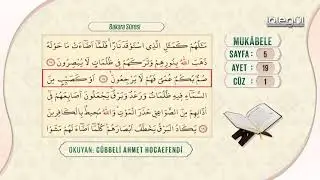 Bakara Sûresi
مَثَلُهُمْ كَمَثَلِ الَّذِي اسْتَوْقَدَ نَارًا فَلَمَّا أَضَاءَتْ مَا حَوْلَهُ
ذَهَبَ اللّٰهُ بِنُورِهِمْ وَتَرَكَهُمْ فِي ظُلُمَاتٍ لَا يُبْصِرُونَ
صُمٌّ بُكْمٌ عُمْيٌ فَهُمْ لَا يَرْجِعُونَ أَوْ كَصَيِّبٍ مِنَ
السَّمَاءِ فِيهِ ظُلُمَاتٌ وَرَعْدٌ وَبَرْقٌ يَجْعَلُونَ أَصَابِعَهُمْ فِي
آذَانِهِمْ مِنَ الصَّوَاعِقِ حَذَرَ الْمَوْتِ وَاللّٰهُ مُحِيطٌ بِالْكَافِرِينَ
يَكَادُ الْبَرْقُ يَخْطَفُ أَبْصَارَهُمْ كُلَّمَا أَضَاءَ لَهُمْ مَشَوْا
OKUYAN: CÜBBELİ AHMET HOCAEFENDİ
MUKÂBELE
SAYFA : 5
AYET : 19
CÜZ : 1